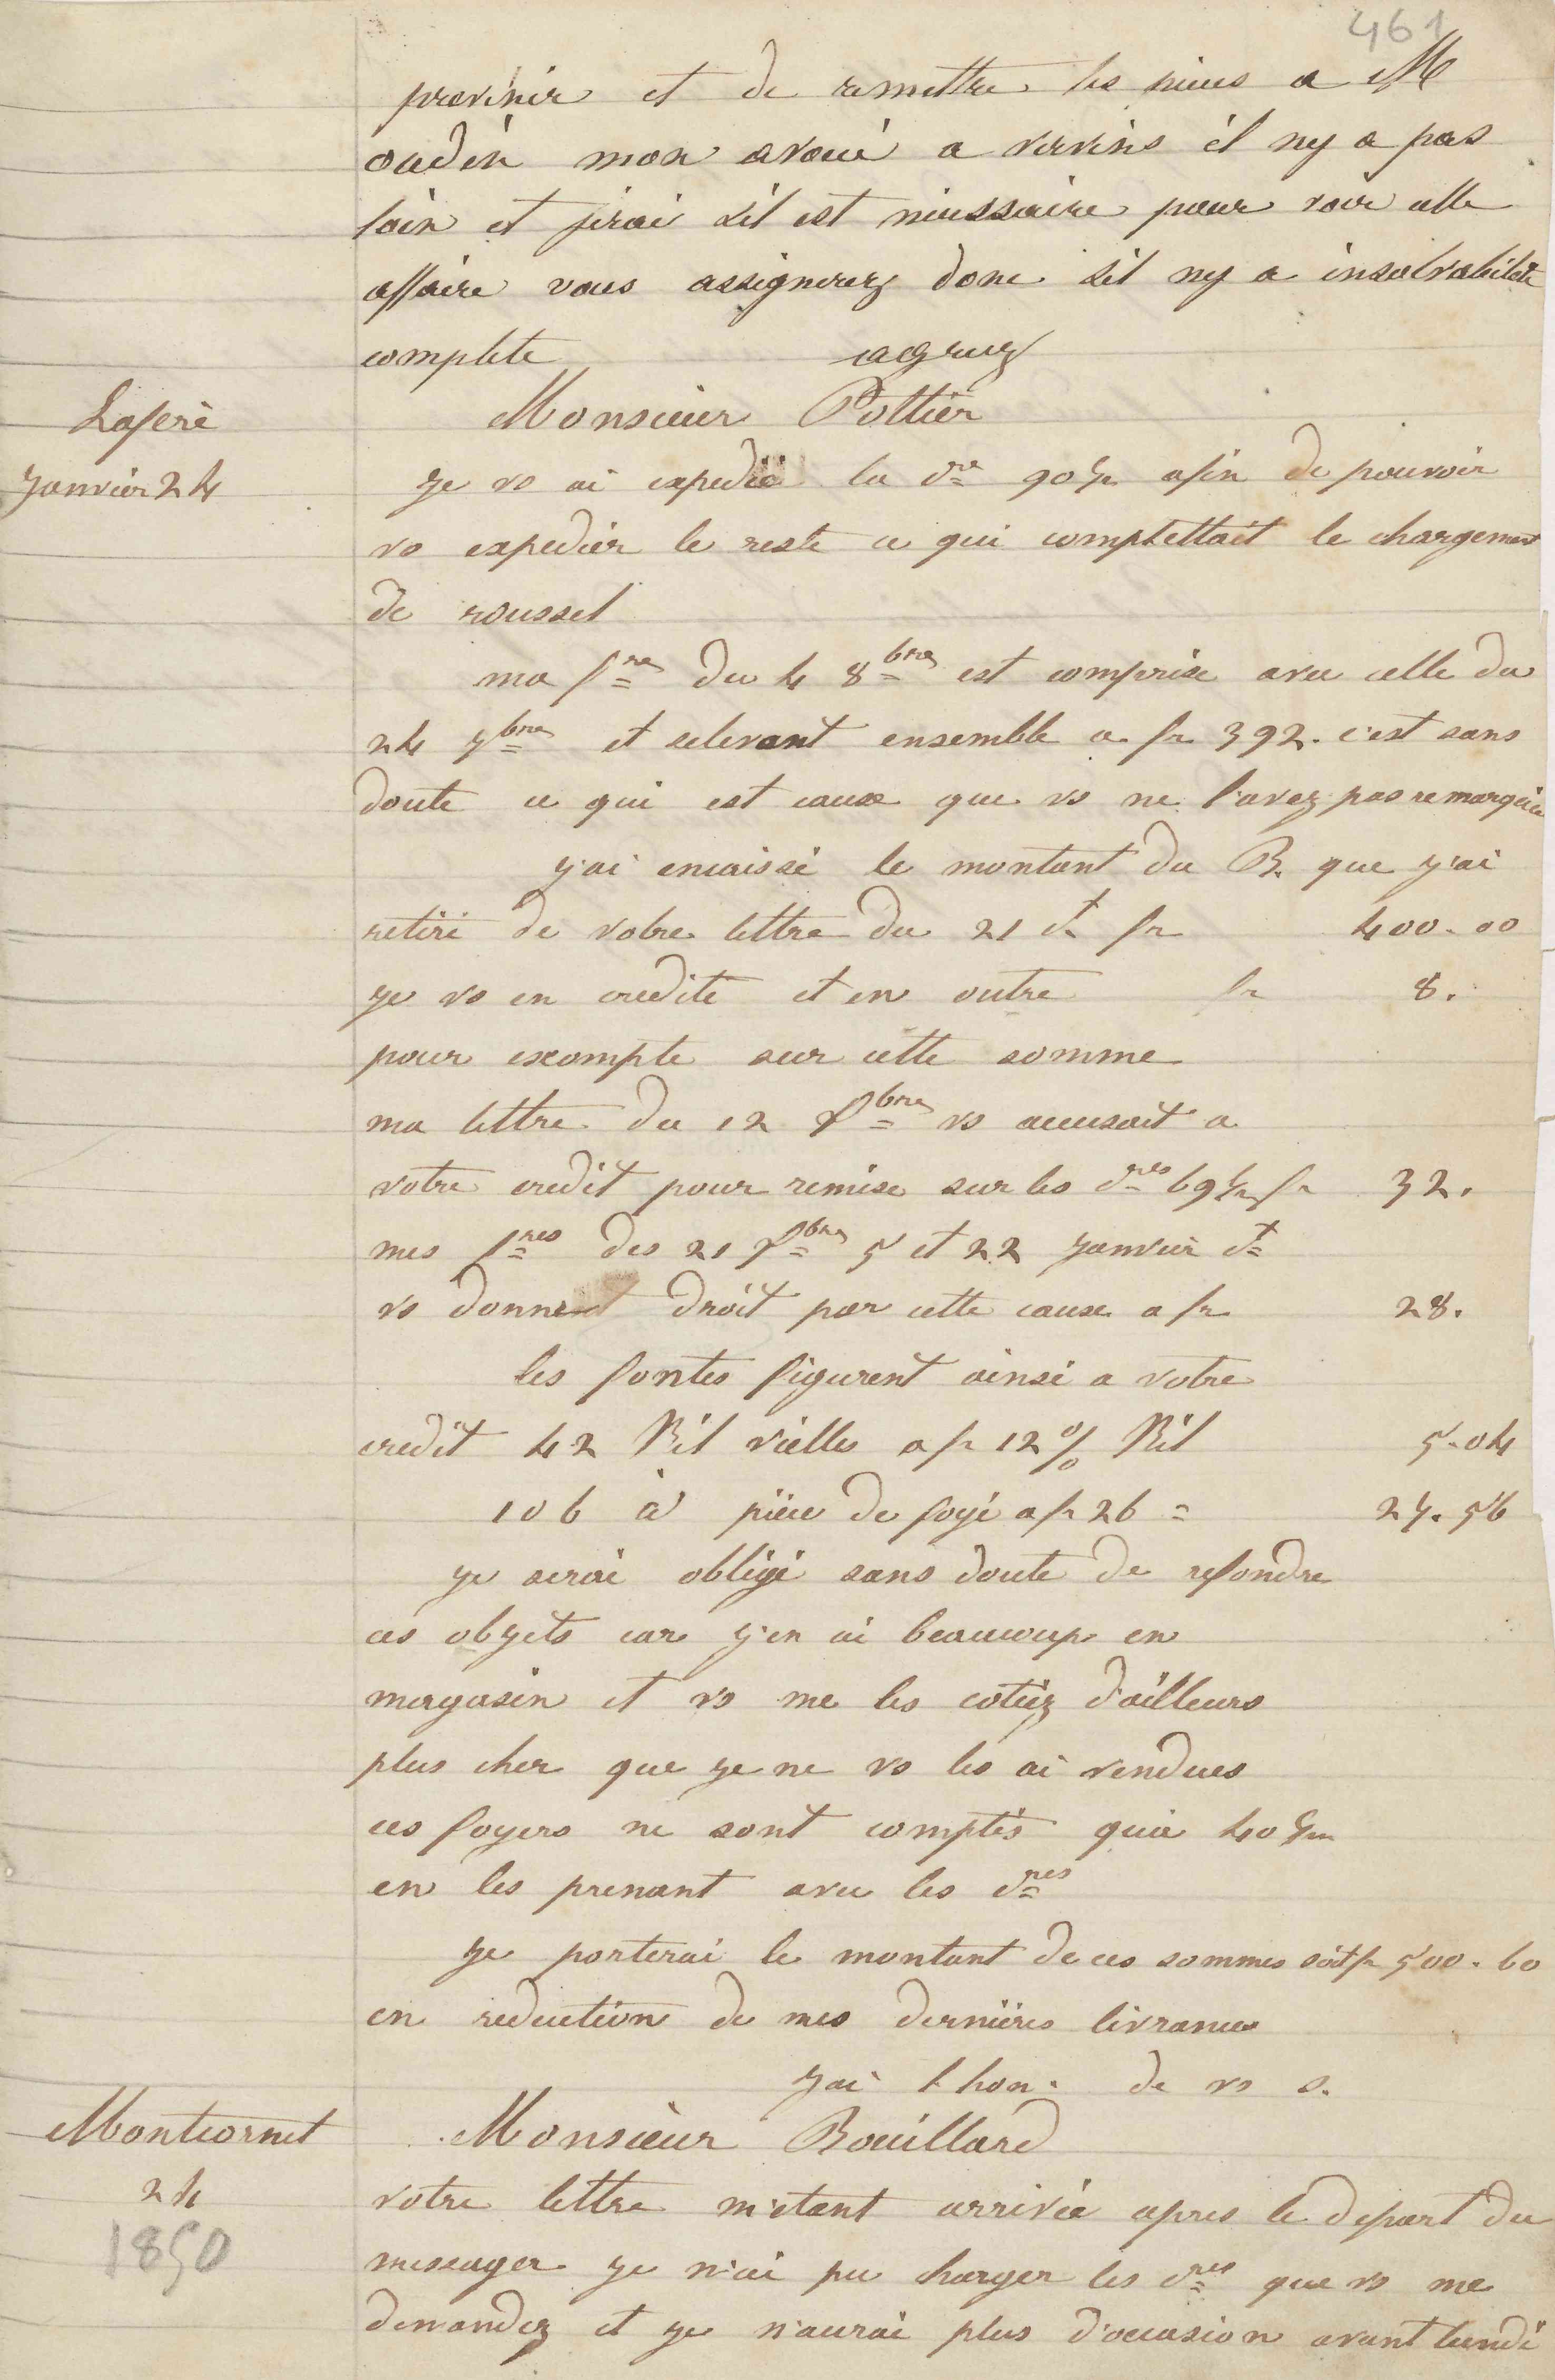 461
prevenir et de remettre les pieces a M
oudin mon avoué a vervins il ny a pas
loin et jirai sil est niessaire pour voir cette
affaire vous assignerez donc sil ny a insolvabilité
complete agreez
Lafere
Janvier 24
Monsieur Pottier
Je vs ai expedié la dre 90 k afin de pouvoir
vs expedier le reste ce qui complettait le chargement
de roussel
ma fre du 4 8bre est comprise avec celle du
24 7bre et selevant ensemble a fr 392. c'est sans
doute ce qui est cause que vs ne l'avez pas remarquée
j'ai encaissé le montant du B. que j'ai
retiré de votre lettre du 21 ct fr 400.00
je vs en credite et en outre fr 8.
pour escompte sur cette somme
ma lettre du 12 Xbre vs accusait a
votre credit pour remise sur les dres 69 k fr 32.
mes fres des 21 Xbre 5 et 22 Janvier ct
vs donnent droit par cette cause a fr 28.
les fontes figurent ainsi a votre
credit 42 Kil vielles a fr 12 % Kil 5.04
106 à piece de foyé a fr 26 = 27.56
je serai obligé sans doute de refondre
ces objets car j'en ai beaucoup en
magasin et vs me les cotiez d'ailleurs
plus cher que je ne vs les ai vendues
ces foyers ne sont comptés qu'a 40 k
en les prenant avec les dres
Je porterai le montant de ces sommes soit fr 500.60
en reduction de mes dernières livrances
J'ai l'hon. de vs s.
Montcornet
24
1850
Monsieur Bouillard
votre lettre m'etant arrivée apres le depart du
messager je n'ai pu charger les dres que vs me
demandez et je n'aurai plus d'occasion avant lundi